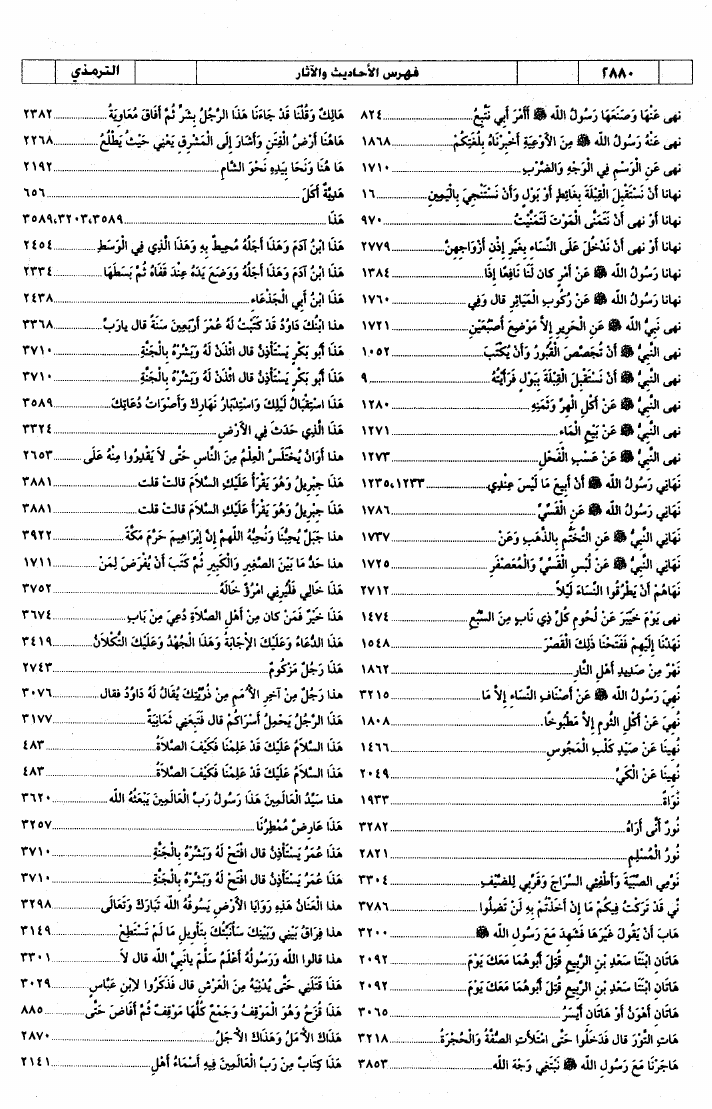 ٢٨٨٠ فهرس الأحاديث والآثار الترمذي
نهى عَنْهَا وَصَنَعَهَا رَسُولُ الله ﷺ أَأَمْرَ أَبِي نَتَّبِعُ ٨٢٤
نهى عَنْهُ رَسُولُ الله ﷺ مِنَ الأَوْعِيَةِ أَخْبِرْنَاهُ بِلُغَتِكُمْ ١٨٦٨
نهى عَنِ الْوَسْمِ فِي الْوَجْهِ وَالضَّرْبِ ١٧١٠
نهانا أَنْ نَسْتَقْبِلَ الْقِبْلَةَ بِغَائِطٍ أَوْ بَوْلٍ وَأَنْ نَسْتَنْجِيَ بِالْيَمِينِ ١٦
نهانا أَوْ نهى أَنْ نَتَمَنَّى الْمَوْتَ لَتَمَنَّيْتُ ٩٧٠
نهانا أَوْ نهى أَنْ نَدْخُلَ عَلَى النِّسَاءِ بِغَيْرِ إِذْنِ أَزْوَاجِهِنَّ ٢٧٧٩
نهانا رَسُولُ الله ﷺ عَنْ أَمْرٍ كان لَنَا نَافِعًا إِذَا ١٣٨٤
نهانا رَسُولُ الله ﷺ عَنْ رُكُوبِ الْمَيَاثِرِ قال وَفِي ١٧٦٠
نهى نَبِيُّ الله ﷺ عَنِ الْحَرِيرِ إِلاَّ مَوْضِعَ أُصْبُعَيْنِ ١٧٢١
نهى النَّبِيُّ ﷺ أَنْ تُجَصَّصَ الْقُبُورُ وَأَنْ يُكْتَبَ ١٠٥٢
نهى النَّبِيُّ ﷺ أَنْ نَسْتَقْبِلَ الْقِبْلَةَ بِبَوْلٍ فَرَأَيْتُهُ ٩
نهى النَّبِيُّ ﷺ عَنْ أَكْلِ الْهِرِّ وَثَمَنِهِ ١٢٨٠
نهى النَّبِيُّ ﷺ عَنْ بَيْعِ الْمَاءِ ١٢٧١
نهى النَّبِيُّ ﷺ عَنْ عَسْبِ الْفَحْلِ ١٢٧٣
نَهَانِي رَسُولُ الله ﷺ أَنْ أَبِيعَ مَا لَيْسَ عِنْدِي ١٢٣٥،١٢٣٣
نَهَانِي رَسُولُ الله ﷺ عَنِ الْقَسِّيِّ ١٧٨٦
نَهَانِي النَّبِيُّ ﷺ عَنِ التَّخَتُّمِ بِالذَّهَبِ وَعَنْ ١٧٣٧
نَهَانِي النَّبِيُّ ﷺ عَنْ لُبْسِ الْقَسِّيِّ وَالْمُعَصْفَرِ ١٧٢٥
نَهَاهُمْ أَنْ يَطْرُقُوا النِّسَاءَ لَيْلاً ٢٧١٢
نهى يَوْمَ خَيْبَرَ عَنْ لُحُومِ كُلِّ ذِي نَابٍ مِنَ السَّبُعِ ١٤٧٤
نَهَدْنَا إِلَيْهِمْ فَفَتَحْنَا ذَلِكَ الْقَصْرَ ١٥٤٨
نَهْرٌ مِنْ صَدِيدِ أَهْلِ النَّارِ ١٨٦٢
نُهِيَ رَسُولُ الله ﷺ عَنْ أَصْنَافِ النِّسَاءِ إِلاَّ مَا ٣٢١٥
نُهِيَ عَنْ أَكْلِ الثُّومِ إِلاَّ مَطْبُوخًا ١٨٠٨
نُهِينَا عَنْ صَيْدِ كَلْبِ الْمَجُوسِ ١٤٦٦
نُهِينَا عَنِ الْكَيِّ ٢٠٤٩
نَوَاةً ١٩٣٣
نُورٌ أَنَّى أَرَاهُ ٣٢٨٢
نُورُ الْمُسْلِمِ ٢٨٢١
نَوِّمِي الصِّبْيَةَ وَأَطْفِئِي السِّرَاجَ وَقَرِّبِي لِلضَّيْفِ ٣٣٠٤
نِّي قَدْ تَرَكْتُ فِيكُمْ مَا إِنْ أَخَذْتُمْ بِهِ لَنْ تَضِلُّوا ٣٧٨٦
هَابَ أَنْ يَقُولَ غَيْرَهَا فَشَهِدَ مَعَ رَسُولِ الله ﷺ ٣٢٠٠
هَاتَانِ ابْنَتَا سَعْدِ بْنِ الرَّبِيعِ قُتِلَ أَبُوهُمَا مَعَكَ يَوْمَ ٢٠٩٢
هَاتَانِ ابْنَتَا سَعْدِ بْنِ الرَّبِيعِ قُتِلَ أَبُوهُمَا مَعَكَ يَوْمَ ٢٠٩٢
هَاتَانِ أَهْوَنُ أَوْ هَاتَانِ أَيْسَرُ ٣٠٦٥
هَاتِ التَّوْرَ قال فَدَخَلُوا حَتَّى امْتَلأَتِ الصُّفَّةُ وَالْحُجْرَةُ ٣٢١٨
هَاجَرْنَا مَعَ رَسُولِ الله ﷺ نَبْتَغِي وَجْهَ الله ٣٨٥٣
هَالِكٌ وَقُلْنَا قَدْ جَاءَنَا هَذَا الرَّجُلُ بِشَرٍّ ثُمَّ أَفَاقَ مُعَاوِيَةُ ٢٣٨٢
هَاهُنَا أَرْضُ الْفِتَنِ وَأَشَارَ إِلَى الْمَشْرِقِ يَعْنِي حَيْثُ يَطْلُعُ ٢٢٦٨
هَا هُنَا وَنَحَا بِيَدِهِ نَحْوَ الشَّامِ ٢١٩٢
هَدِيَّةٌ أَكَلَ ٦٥٦
هَذَا ٣٥٨٩،٣٢٠٣،٣٥٨٩
هَذَا ابْنُ آدَمَ وَهَذَا أَجَلُهُ مُحِيطٌ بِهِ وَهَذَا الَّذِي فِي الْوَسَطِ ٢٤٥٤
هَذَا ابْنُ آدَمَ وَهَذَا أَجَلُهُ وَوَضَعَ يَدَهُ عِنْدَ قَفَاهُ ثُمَّ بَسَطَهَا ٢٣٣٤
هَذَا ابْنُ أَبِي الْجَذْعَاءِ ٢٤٣٨
هذا ابْنُكَ دَاوُدُ قَدْ كَتَبْتُ لَهُ عُمْرَ أَرْبَعِينَ سَنَةً قال يارَبِّ ٣٣٦٨
هَذَا أَبُو بَكْرٍ يَسْتَأْذِنُ قال ائْذَنْ لَهُ وَبَشِّرْهُ بِالْجَنَّةِ ٣٧١٠
هَذَا أَبُو بَكْرٍ يَسْتَأْذِنُ قال ائْذَنْ لَهُ وَبَشِّرْهُ بِالْجَنَّةِ ٣٧١٠
هَذَا اسْتِقْبَالُ لَيْلِكَ وَاسْتِدْبَارُ نَهَارِكَ وَأَصْوَاتُ دُعَاتِكَ ٣٥٨٩
هَذَا الَّذِي حَدَثَ فِي الأَرْضِ ٣٣٢٤
هذا أَوَانُ يُخْتَلَسُ الْعِلْمُ مِنَ النَّاسِ حَتَّى لاَ يَقْدِرُوا مِنْهُ عَلَى ٢٦٥٣
هَذَا جِبْرِيلُ وَهُوَ يَقْرَأُ عَلَيْكِ السَّلاَمَ قالتْ قلت ٣٨٨١
هَذَا جِبْرِيلُ وَهُوَ يَقْرَأُ عَلَيْكِ السَّلاَمَ قالتْ قلت ٣٨٨١
هذا جَبَلٌ يُحِبُّنَا وَنُحِبُّهُ اللَّهمَّ إِنَّ إِبْرَاهِيمَ حَرَّمَ مَكَّةَ ٣٩٢٢
هَذَا حَدُّ مَا بَيْنَ الصَّغِيرِ وَالْكَبِيرِ ثُمَّ كَتَبَ أَنْ يُفْرَضَ لِمَنْ ١٧١١
هَذَا خَالِي فَلْيُرِنِي امْرُؤٌ خَالَهُ ٣٧٥٢
هَذَا خَيْرٌ فَمَنْ كان مِنْ أَهْلِ الصَّلاَةِ دُعِيَ مِنْ بَابِ ٣٦٧٤
هَذَا الدُّعَاءُ وَعَلَيْكَ الإِجَابَةُ وَهَذَا الْجُهْدُ وَعَلَيْكَ التُّكْلاَنُ ٣٤١٩
هَذَا رَجُلٌ مَزْكُومٌ ٢٧٤٣
هذا رَجُلٌ مِنْ آخِرِ الأُمَمِ مِنْ ذُرِّيَّتِكَ يُقَالُ لَهُ دَاوُدُ فقال ٣٠٧٦
هَذَا الرَّجُلُ يَحْمِلُ أَسْرَاكُمْ قال فَتَبِعَنِي ثَمَانِيَةٌ ٣١٧٧
هَذَا السَّلاَمُ عَلَيْكَ قَدْ عَلِمْنَا فَكَيْفَ الصَّلاَةُ ٤٨٣
هَذَا السَّلاَمُ عَلَيْكَ قَدْ عَلِمْنَا فَكَيْفَ الصَّلاَةُ ٤٨٣
هذا سَيِّدُ الْعَالَمِينَ هَذَا رَسُولُ رَبِّ الْعَالَمِينَ يَبْعَثُهُ الله ٣٦٢٠
هَذَا عَارِضٌ مُمْطِرُنَا ٣٢٥٧
هَذَا عُمَرُ يَسْتَأْذِنُ قال افْتَحْ لَهُ وَبَشِّرْهُ بِالْجَنَّةِ ٣٧١٠
هَذَا عُمَرُ يَسْتَأْذِنُ قال افْتَحْ لَهُ وَبَشِّرْهُ بِالْجَنَّةِ ٣٧١٠
هذا الْعَنَانُ هَذِهِ رَوَايَا الأَرْضِ يَسُوقُهُ الله تَبَارَكَ وَتَعَالَى ٣٢٩٨
هذا فِرَاقُ بَيْنِي وَبَيْنِكَ سَأُنَبِّئُكَ بِتَأْوِيلِ مَا لَمْ تَسْتَطِعْ ٣١٤٩
هذا قالوا الله وَرَسُولُهُ أَعْلَمُ سَلَّمَ يانَبِيَّ الله قال لاَ ٣٣٠١
هَذَا قَتَلَنِي حَتَّى يُدْنِيَهُ مِنَ الْعَرْشِ قال فَذَكَرُوا لابْنِ عَبَّاسٍ ٣٠٢٩
هَذَا قُزَحُ وَهُوَ الْمَوْقِفُ وَجَمْعٌ كُلُّهَا مَوْقِفٌ ثُمَّ أَفَاضَ حَتَّى ٨٨٥
هَذَاكَ الأَمَلُ وَهَذَاكَ الأَجَلُ ٢٨٧٠
هَذَا كِتَابٌ مِنْ رَبِّ الْعَالَمِينَ فِيهِ أَسْمَاءُ أَهْلِ ٢١٤١